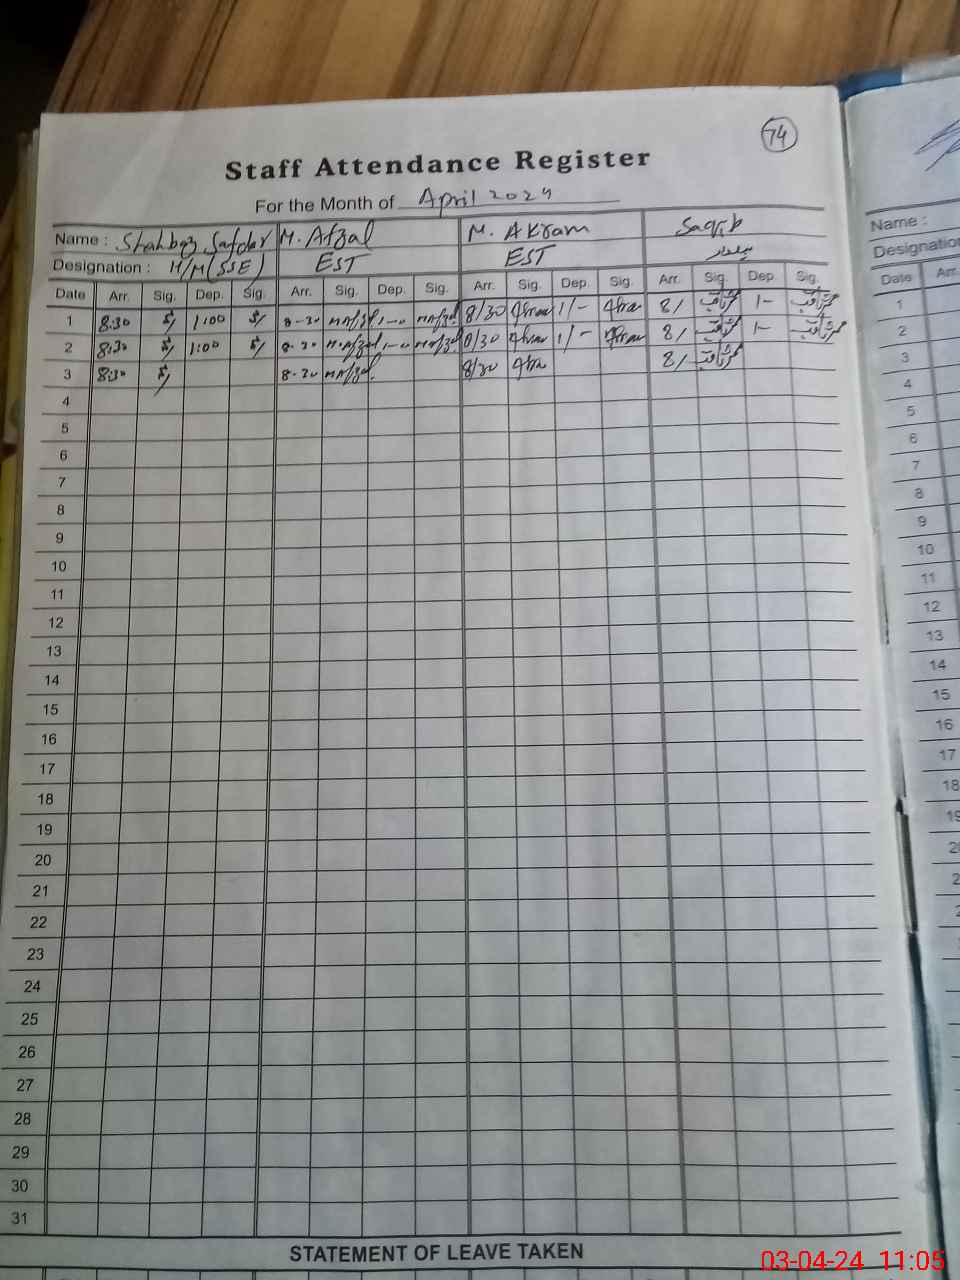 74
Staff Attendance Register
For the Month of April 2024
Name : Shahbaz Safdar M. Afzal M. Akram Saqib
Designation : H/M(SSE) EST EST
Date Arr. Sig. Dep. Sig. Arr. Sig. Dep. Sig. Arr. Sig. Dep. Sig. Arr. Sig. Dep. Sig.
1 8:30 1:00 8-30 M.Afzal 1-00 M.Afzal 8/30 Akram 1/- Akram 8/ 1-
2 8:30 1:00 8-30 M.Afzal 1-00 M.Afzal 8/30 Akram 1/- Akram 8/ 1-
3 8:30 8-30 M.Afzal 8/30 Akram 8/
4
5
6
7
8
9
10
11
12
13
14
15
16
17
18
19
20
21
22
23
24
25
26
27
28
29
30
31
STATEMENT OF LEAVE TAKEN
Name :
Designation
Date Arr.
1
2
3
4
5
6
7
8
9
10
11
12
13
14
15
16
17
18
03-04-24 11:05